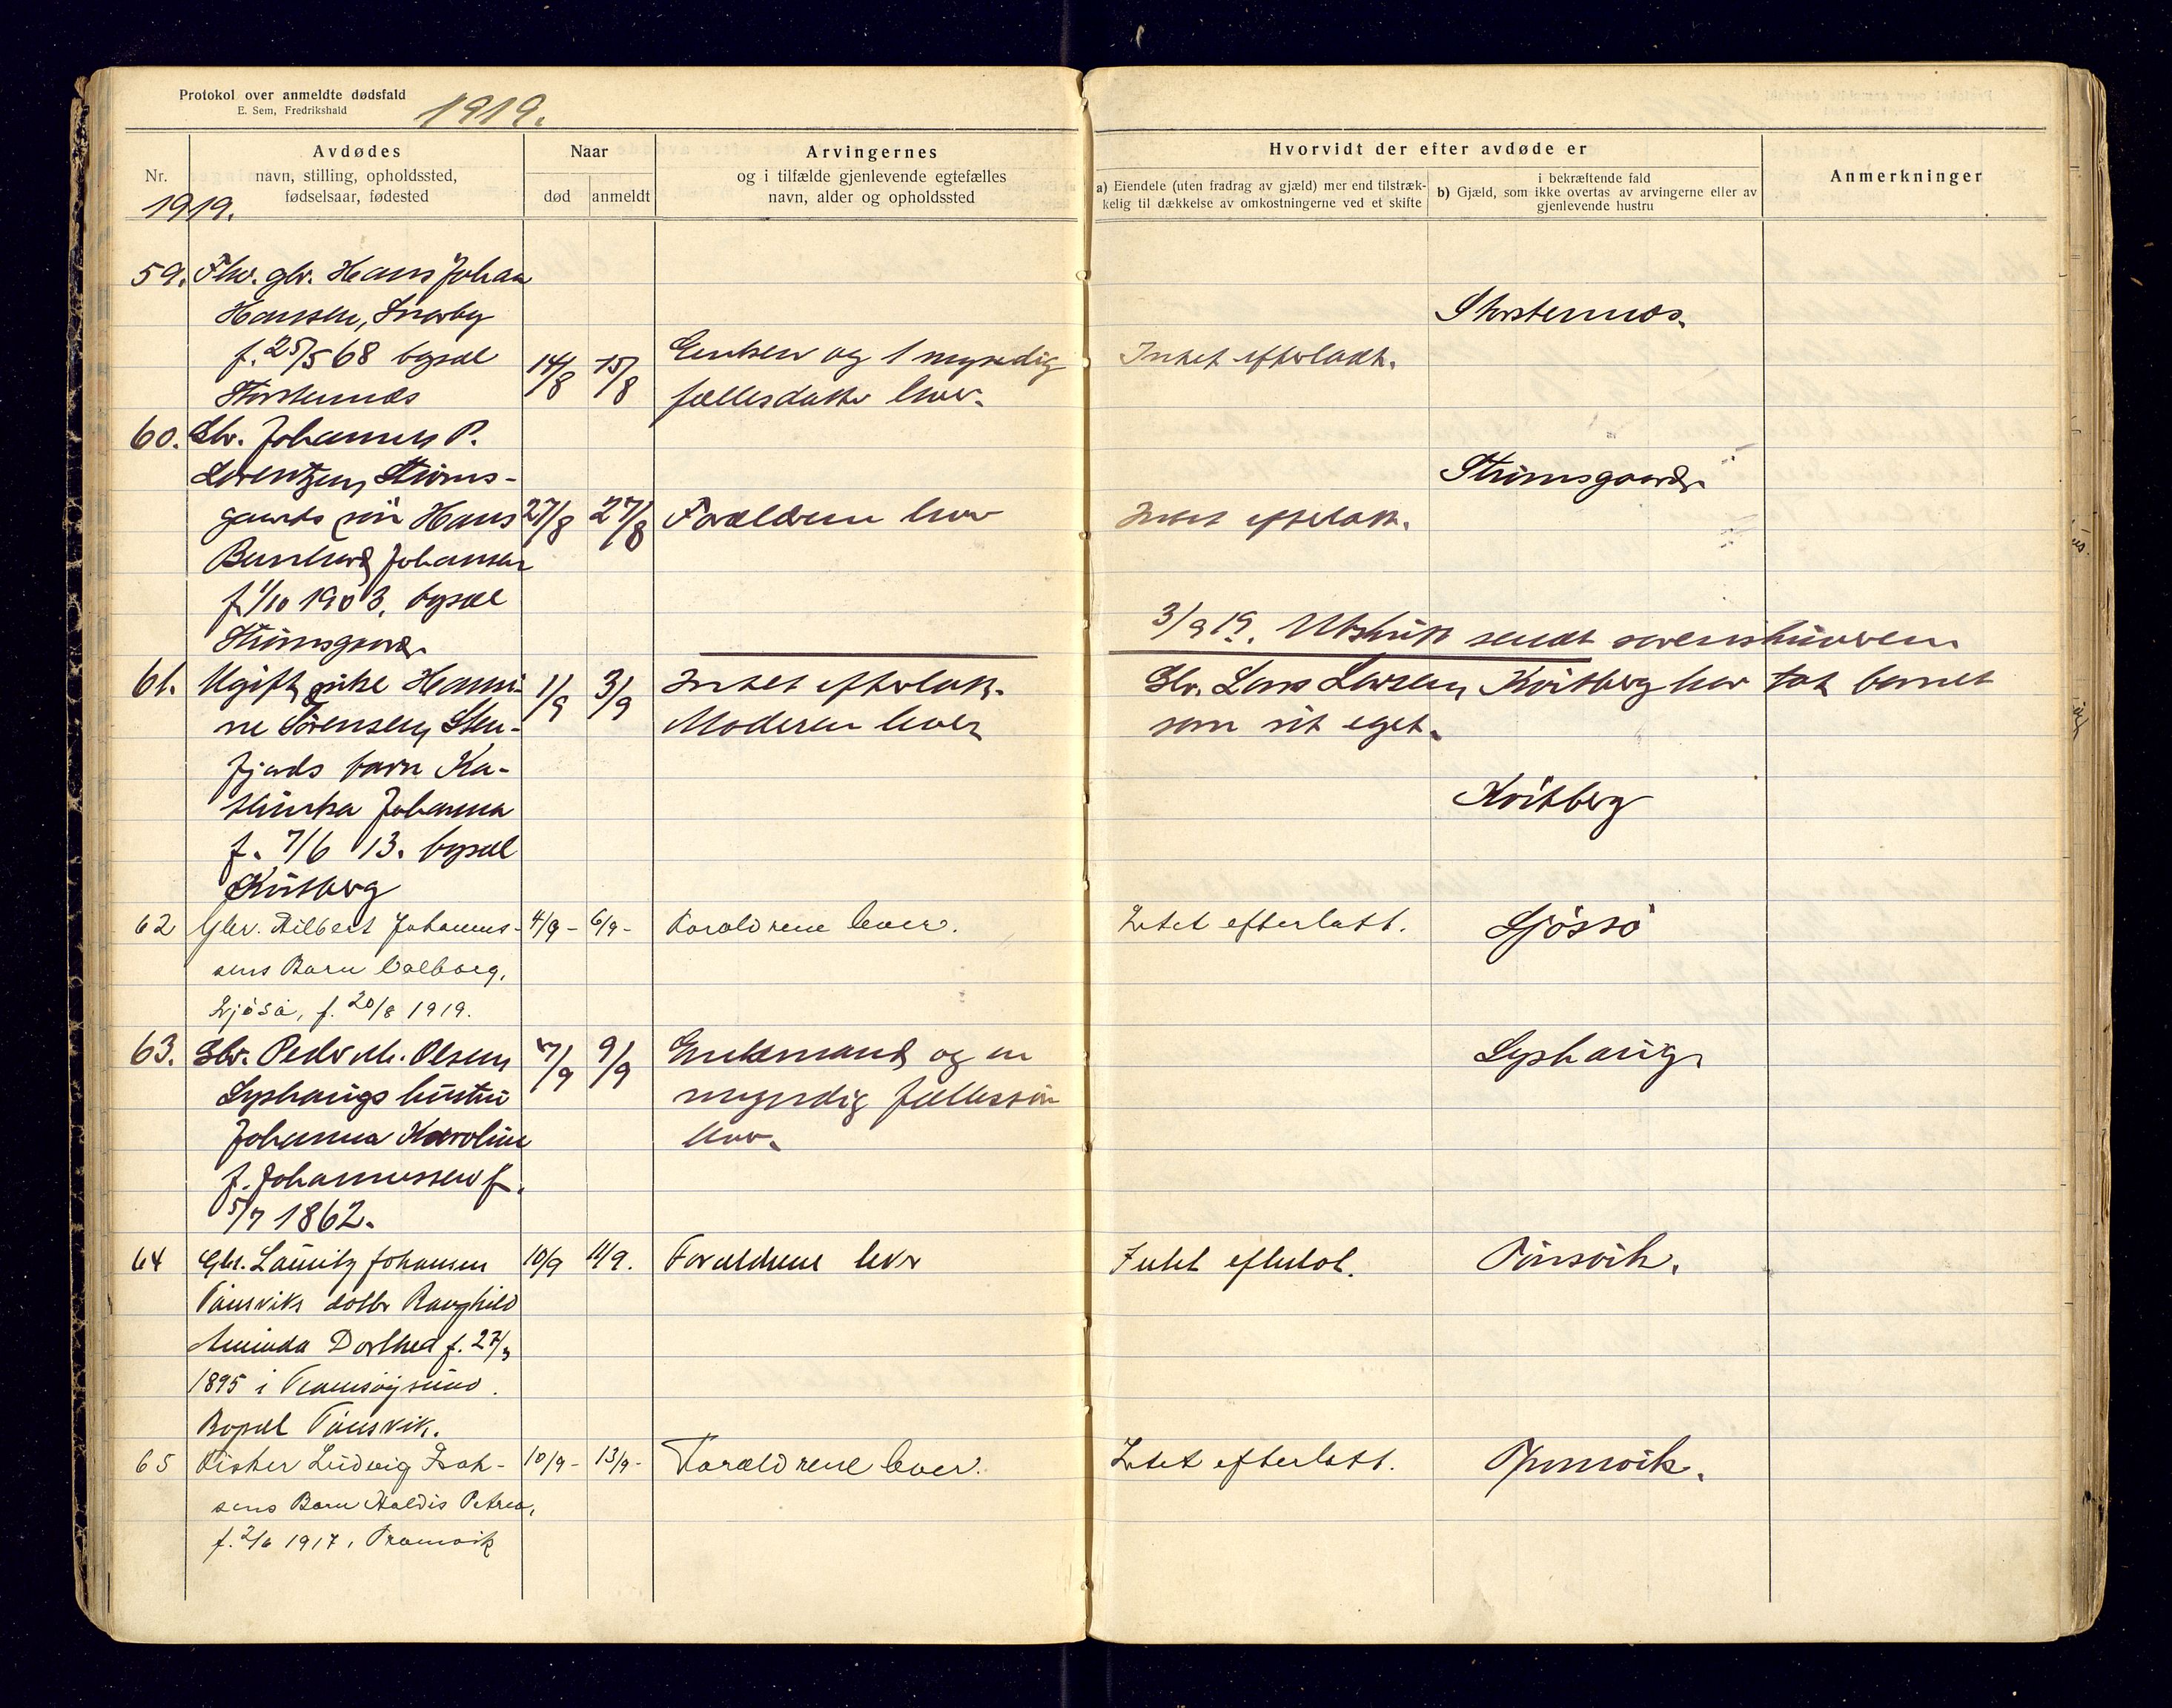 Protokol over anmeldte dødsfald
E. Sem, Fredrikshald
1919.
Nr.
1919.
Avdødes
navn, stilling, opholdssted,
fødselsaar, fødested
Naar
død
anmeldt
Arvingernes
og i tilfælde gjenlevende egtefælles
navn, alder og opholdssted
Hvorvidt der efter avdøde er
a) Eiendele (uten fradrag av gjæld) mer end tilstræk-
kelig til dækkelse av omkostningerne ved et skifte
i bekræftende fald
b) Gjæld, som ikke overtas av arvingerne eller av
gjenlevende hustru
Anmerkninger
59. Fhv. gbr. Hans Johan
Hansen, Snarby
f. 25/5 68 bopæl
Storstennæs
14/8 15/8
Enken og 1 myndig
fællesdatter lever.
Intet efterlatt.
Storstennæs.
60. Gbr. Johannes P.
Lorentzen, Strøms-
gaards søn Hans
Bernhard Johansen
f. 1/10 1903, bopæl
Strømsgaard.
27/8 27/8
Forældrene lever
Intet efterlatt.
Strømsgaard.
3/9 19. Utskrift sendt sorenskriveren
61. Ugift pike Hansi-
ne Sørensen, Sten-
fjords barn Ka-
thinka Johanna
f. 7/6 13. bopæl
Kvitberg
1/9 3/9
Intet efterlatt.
Moderen lever
Gbr. Lars Larsen, Kvitberg har tat barnet
som sit eget.
Kvitberg
62 Gbr. Hilbert Johannes-
sens Barn Valborg,
Sjøsø, f. 20/8 1919.
4/9 - 6/9 -
Forældrene lever.
Intet efterlatt.
Sjøssø
63. Gbr. Peder M. Olsen
Lyshaugs hustru
Johanna Karoline
f. Johannessen f.
5/7 1862.
7/9 9/9
Enkemand og en
myndig fællessøn
lever.
Lyshaug.
64 Gbr. Lauritz Johansen
Tønsviks datter Ranghild
Aminda Dorthea f. 27/3
1895 i Tromsøysund.
Bopæl Tønsvik.
10/9 11/9.
Forældrene lever
Intet efterlat.
Tønsvik.
65 Fisker Ludvig Isak-
sens Barn Haldis Petrea,
f. 2/6 1917,
10/9 - 13/9 -
Forældrene lever.
Intet efterlatt.